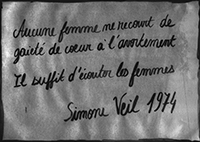 Aucune femme ne recourt de
gaieté de cœur à l'avortement
Il suffit d'écouter les femmes
Simone Veil 1974